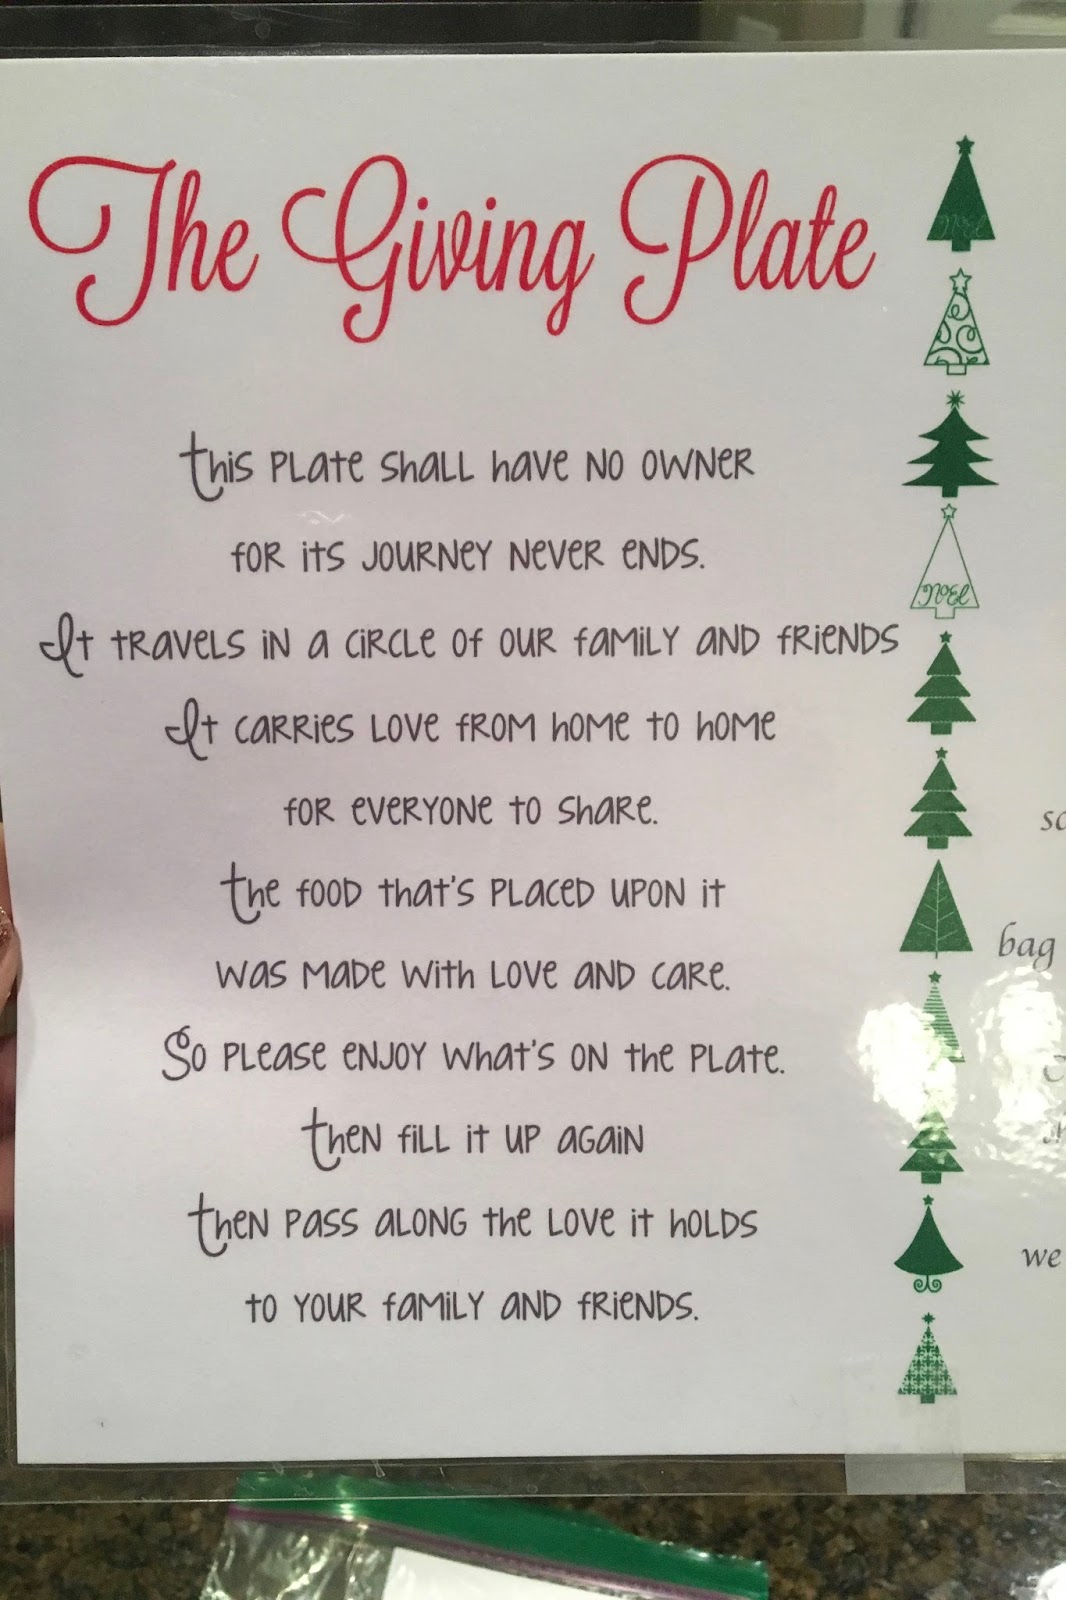 The Giving Plate
This plate shall have no owner
for its journey never ends.
It travels in a circle of our family and friends
It carries love from home to home
for everyone to share.
The food that's placed upon it
was made with love and care.
So please enjoy what's on the plate.
Then fill it up again
Then pass along the love it holds
to your family and friends.
NOEL
NOEL
bag
we